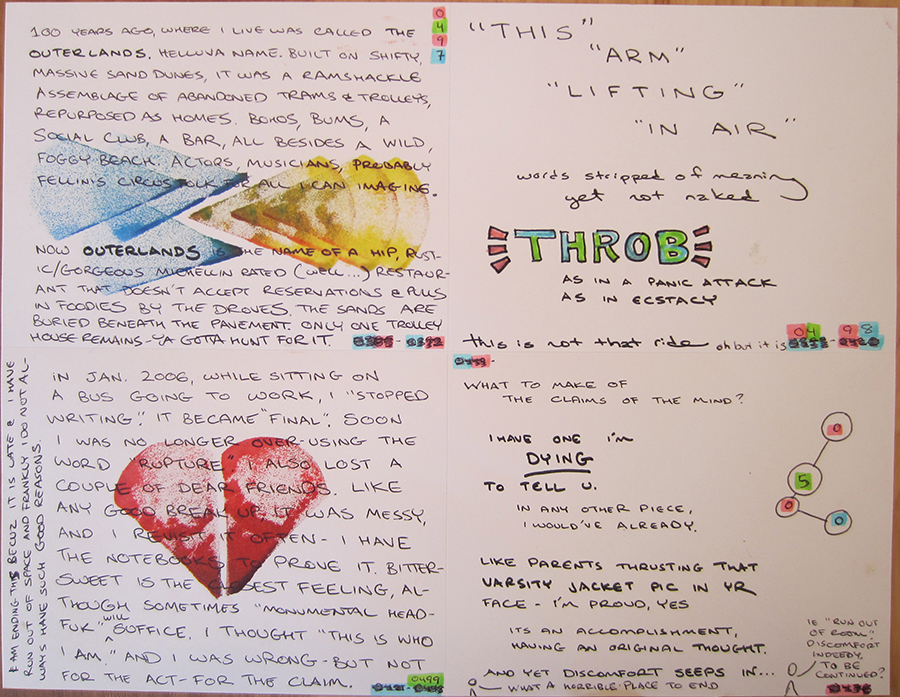 0
4
9
7
100 YEARS AGO, WHERE I LIVE WAS CALLED THE
OUTERLANDS. HELLUVA NAME. BUILT ON SHIFTY,
MASSIVE SAND DUNES, IT WAS A RAMSHACKLE
ASSEMBLAGE OF ABANDONED TRAMS & TROLLEYS,
REPURPOSED AS HOMES. BOHOS, BUMS, A
SOCIAL CLUB, A BAR, ALL BESIDES A WILD,
FOGGY BEACH. ACTORS, MUSICIANS, PROBABLY
FELLINI'S CIRCUS FOLK FOR ALL I CAN IMAGINE.
NOW OUTERLANDS IS THE NAME OF A HIP, RUST-
IC/GORGEOUS MICHELLIN RATED (WELL...) RESTAUR-
ANT THAT DOESN'T ACCEPT RESERVATIONS & PULLS
IN FOODIES BY THE DROVES. THE SANDS ARE
BURIED BENEATH THE PAVEMENT. ONLY ONE TROLLEY
HOUSE REMAINS-YA GOTTA HUNT FOR IT.
"THIS"
"ARM"
"LIFTING"
"IN AIR"
words stripped of meaning
yet not naked
THROB
AS IN A PANIC ATTACK
AS IN ECSTACY
this is not that ride oh but it is
04 98
IN JAN. 2006, WHILE SITTING ON
A BUS GOING TO WORK, I "STOPPED
WRITING". IT BECAME "FINAL". SOON
I WAS NO LONGER OVER-USING THE
WORD "RUPTURE" I ALSO LOST A
COUPLE OF DEAR FRIENDS. LIKE
ANY GOOD BREAK UP, IT WAS MESSY,
AND I REVISIT IT OFTEN - I HAVE
THE NOTEBOOKS TO PROVE IT. BITTER-
SWEET IS THE CLOSEST FEELING, AL-
THOUGH SOMETIMES "MONUMENTAL HEAD-
FUK" will SUFFICE. I THOUGHT "THIS IS WHO
I AM." AND I WAS WRONG - BUT NOT
FOR THE ACT - FOR THE CLAIM.
0499
I AM ENDING THIS BECUZ IT IS LATE & I HAVE
RUN OUT OF SPACE AND FRANKLY I DO NOT AL-
WAYS HAVE SUCH GOOD REASONS.
WHAT TO MAKE OF
THE CLAIMS OF THE MIND?
I HAVE ONE I'M
DYING
TO TELL U.
IN ANY OTHER PIECE,
I WOULD'VE ALREADY.
0
5
0
0
LIKE PARENTS THRUSTING THAT
VARSITY JACKET PIC IN YR
FACE - I'M PROUD, YES
ITS AN ACCOMPLISHMENT,
HAVING AN ORIGINAL THOUGHT.
AND YET DISCOMFORT SEEPS IN...
WHAT A HORRIBLE PLACE TO END
IE "RUN OUT
OF ROOM."
DISCOMFORT
INDEEDY.
TO BE
CONTINUED?